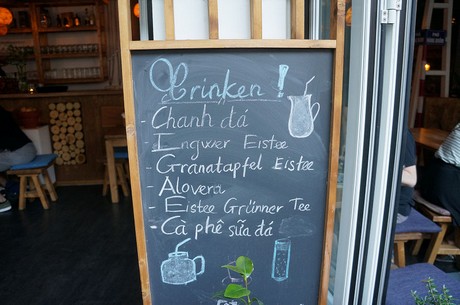 Trinken!
- Chanh đá
- Ingwer Eistee
- Granatapfel Eistee
- Alovera
- Eistee Grünner Tee
- Cà phê sữa đá